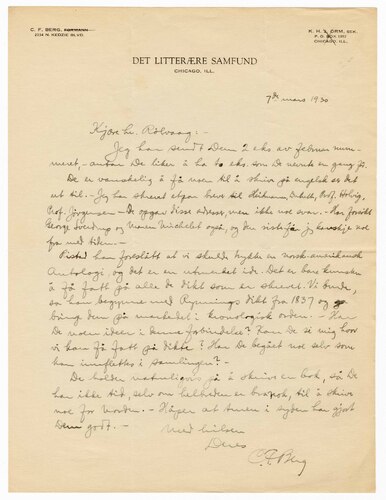 C. F. BERG, FORMANN
2334 N. KEDZIE BLVD.
K. H. ORM, SEK.
P. O. BOX
CHICAGO, ILL.
DET LITTERÆRE SAMFUND
CHICAGO, ILL.
7de mars 1930
Kjære hr. Rölvaag:-
Jeg har sendt Dem 2 eks av februar num-
meret, - antar De liker å ha to eks. som De nevnte en gang før.
De er vanskelig å få noen til å skrive på engelsk ser det
ut til. - Jeg har skrevet etpar breve til Prof. Hohvig,
Prof. Jörgensen - De opgav disse adresser, men ikke noe svar. - Har forsökt
George Sverdrup og Maren Michelet også, og den siste får jeg kanskje noe
fra med tiden. -
har foreslått at vi skulde trykke en norsk-amerikansk
Antologi, og det er en utmerket ide. Det er bare kunsten
å få fatt på alle de dikt som er skrevet. Vi burde,
sa han begynne med Rynnings dikt fra 1837 og så
bring dem på markedet i kronologisk orden. - Har
De noen ideer i denne forbindelse? Kan De si mig hvor
vi kan få fatt på dikte? Har De begået noe selv som
kan innflettes i samlingen? -
De holder naturligvis på å skrive en bok, så De
har ikke tid, selv om helheden er brapok, til å skrive
noe for Norden. - Håper at turen i syden har gjort
Dem godt. -
Med hilsen
Deres
C. F. Berg